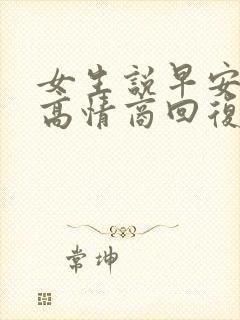 女生說早安
高情商回復
常坤